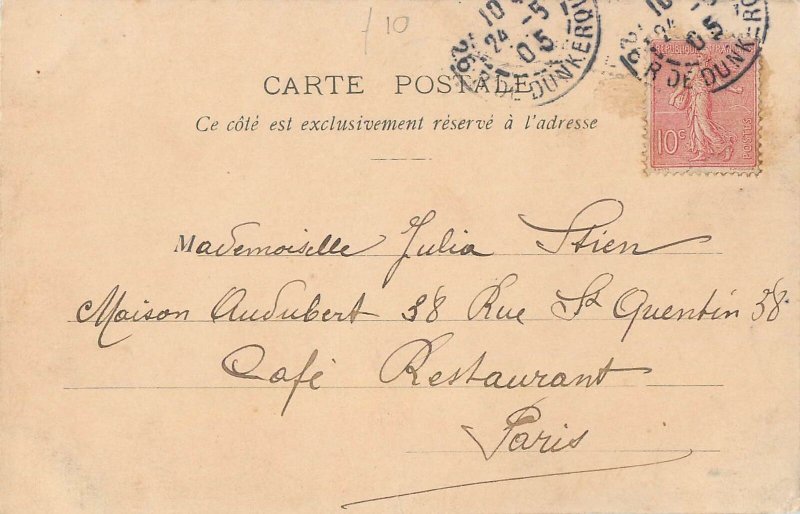 /10
10 5
24 05
26 R DE DUNKERQ
10 5
24 05
26 R DE DUNKERQ
REPUBLIQUE FRAN
10c
POSTES
CARTE POSTALE
Ce côté est exclusivement réservé à l'adresse
Mademoiselle Julia Stien
Maison Audubert 38 Rue St Quentin 38
Café Restaurant
Paris